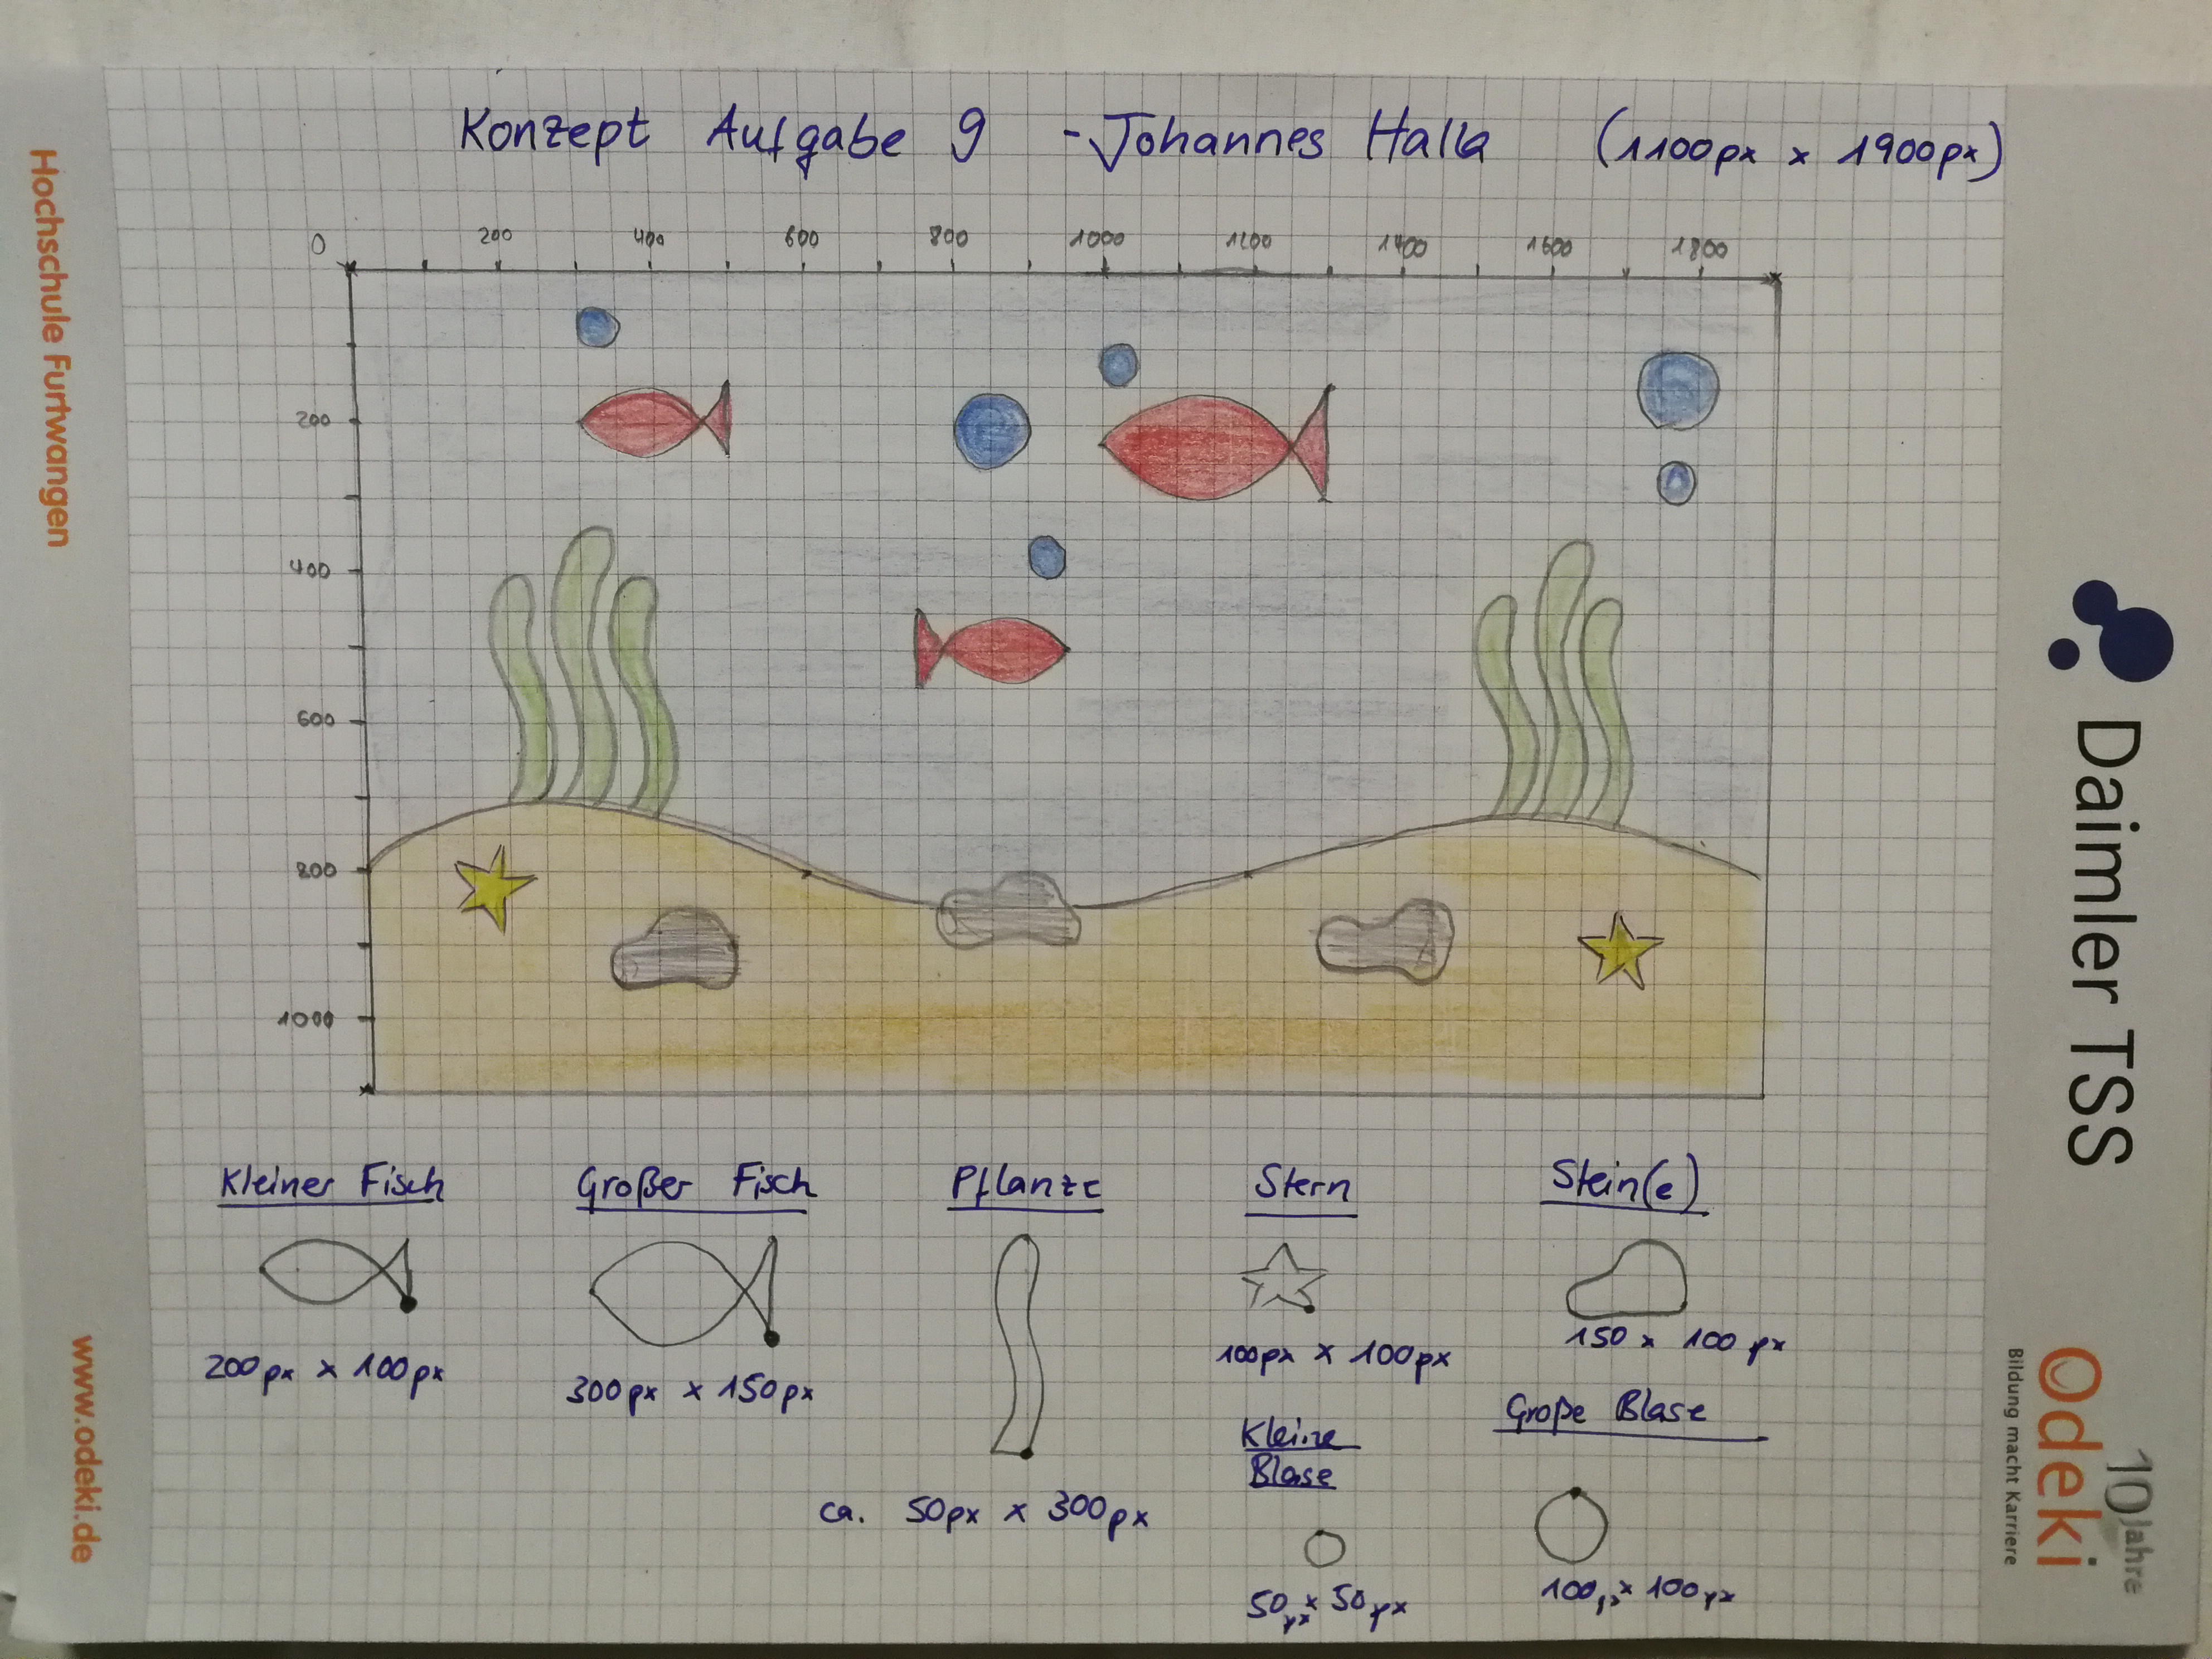 Konzept Aufgabe 9 - Johannes Halla (1100px x 1900px)
0 200 400 600 800 1000 1200 1400 1600 1800
200
400
600
800
1000
Kleiner Fisch
200px x 100px
Großer Fisch
300px x 150px
Pflanze
ca. 50px x 300px
Stern
100px x 100px
Stein(e)
150 x 100 px
Kleine
Blase
50px x 50px
Große Blase
100px x 100px
Hochschule Furtwangen
www.odeki.de
Daimler TSS
Odeki
Bildung macht Karriere
10 Jahre